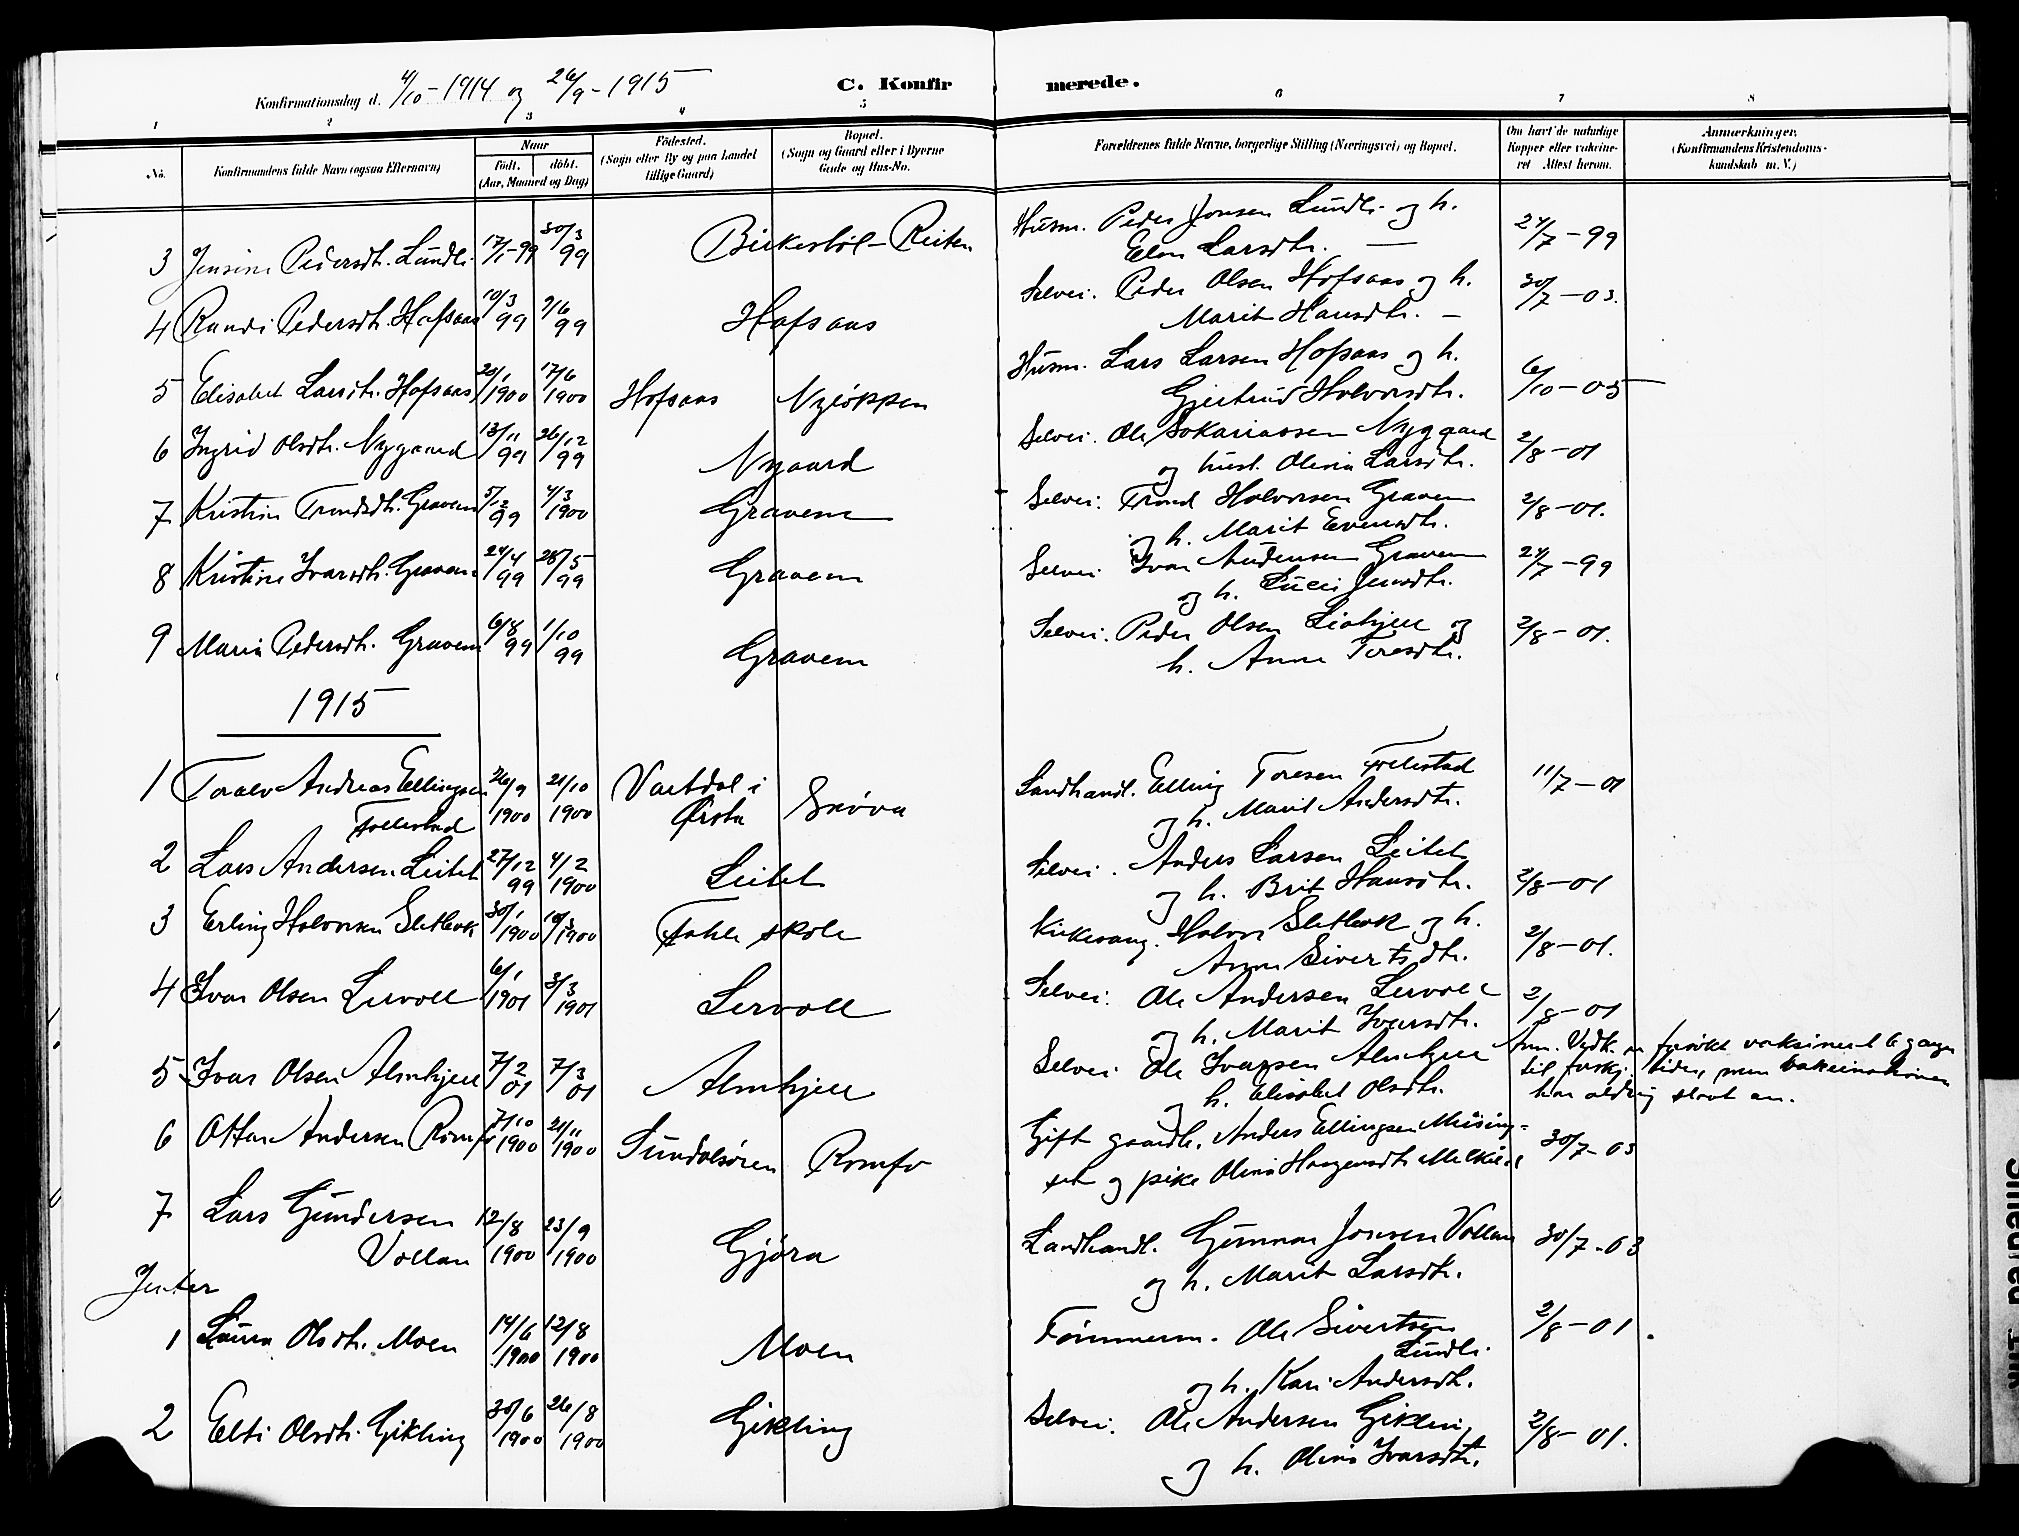 Konfirmationsdag d. 4/10-1914 og 26/9-1915
C. Konfirmerede.
1 2 3 4 5 6 7 8
No.
Konfirmandens fulde Navn (ogsaa Efternavn)
Naar
født. døbt.
(Aar, Maaned og Dag)
Fødested.
(Sogn eller By og paa Landet
tillige Gaard)
Bopæl.
(Sogn og Gaard eller i Byerne
Gade og Hus-No.
Forældrenes fulde Navne, borgerlige Stilling (Næringsvei) og Bopæl.
Om havt de naturlige
Kopper eller vakcine-
ret Attest herom.
Anmærkninger.
(Konfirmandens Kristendoms-
kundskab m. V.)
3 Jensine Pedersdt. Lundli 17/1-99 30/3 99 Birkestøl-Reiten Husm. Peder Jonsen Lundli og h.
Elen Larsdtr. — 24/7-99
4 Randi Pedersdt. Hofsaas 10/3 99 99 Hofsaas Selvei. Peder Olsen Hofsaas og h.
Marit Hansdtr. — 30/7-03.
5 Elisabet Larsdt. Hofsaas 1900 17/6 1900 Hofsaas Nyløkken Husm. Lars Larsen Hofsaas og h.
Gjertrud Halvorsdtr. 6/10-05
6 Ingrid Olsdt. Nygaard 13/11 99 26/12 99 Nygaard Selvei. Ole Sakariassen Nygaard
og hust. Olina Larsdtr. 2/8-01
7 Kristine Trondsdt. Gravem 5/12 99 4/3 1900 Gravem Selvei. Trond Halvorsen Gravem
og h. Marit Evensdtr. 2/8-01.
8 Kristine Ivarsdt. Gravem 24/4 99 28/5 99 Gravem Selvei Ivar Andersen Gravem
og h. Jensdtr. 24/7-99
9 Maria Pedersdt. Gravem 6/8 99 1/10 99 Gravem Selvei. Peder Olsen og
h. Anne Toresdtr. 2/8-01.
1915
1 Andreas Ellingsen
Follestad 26/9 1900 21/10 1900 Vartdal i
Ørsta Grøva Landhandl. Elling Toresen Follestad
og h. Marit Andersdtr. 11/7-01
2 Lars Andersen Leitet 27/12 99 4/2 1900 Leitet Selvei. Anders Larsen Leitet
og h. Brit Hansdtr. 2/8-01
3 Erling Halvorsen Sletbak 30/1 1900 1900 Fahle skole Kirkesang. Halvor Sletbak og h.
Anne Sivertsdtr. 2/8-01.
4 Ivar Olsen Lervoll 6/1 1901 3/3 1901 Lervoll Selvei. Ole Andersen Lervoll
og h. Marit Ivarsdtr. 2/8-01
5 Ivar Olsen Almskjell 7/2 01 7/3 01 Almskjell Selvei Ole Ivarsen Almskjell
og h. Elisabet Olsdtr. Anm. Vedk. er forsøkt vaksineret 6 gange
til forskj. tider, men vaksinationen
har aldrig slaat an.
6 Ottar Andersen Romfo 7/10 1900 21/11 1900 Sundalsøren Romfo Gift gaardb. Anders Ellingsen Meising-
set og pike Olina Haagensdt. 30/7-03
7 Lars Gundersen
Vollan 12/8 1900 23/9 1900 Gjøra Landhandl. Gunnar Jonsen Vollan
og h. Marit Larsdtr. 30/7-03
Jenter
1 Laura Olsdt. Moen 14/6 1900 12/8 1900 Moen Tømmerm. Ole Sivertsen
Lundli.
og h. Kari Andersdt. 2/8-01.
2 Elti Olsdt. Gikling 30/6 1900 26/8 1900 Gikling Selvei. Ole Andersen Gikling
og h. Olina Ivarsdtr. 2/8-01.